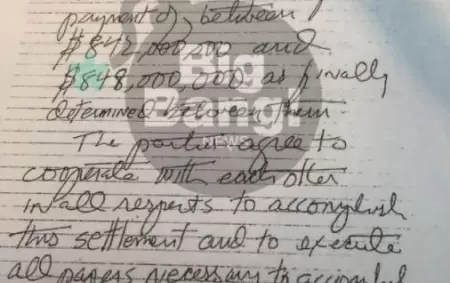 payment of, between
$842,000,000 and
$848,000,000 as finally
determined between them.
The parties agree to
cooperate with each other
in all respects to accomplish
this settlement and to execute
all papers necessary to accomplish
Big
Bang!
NEWS